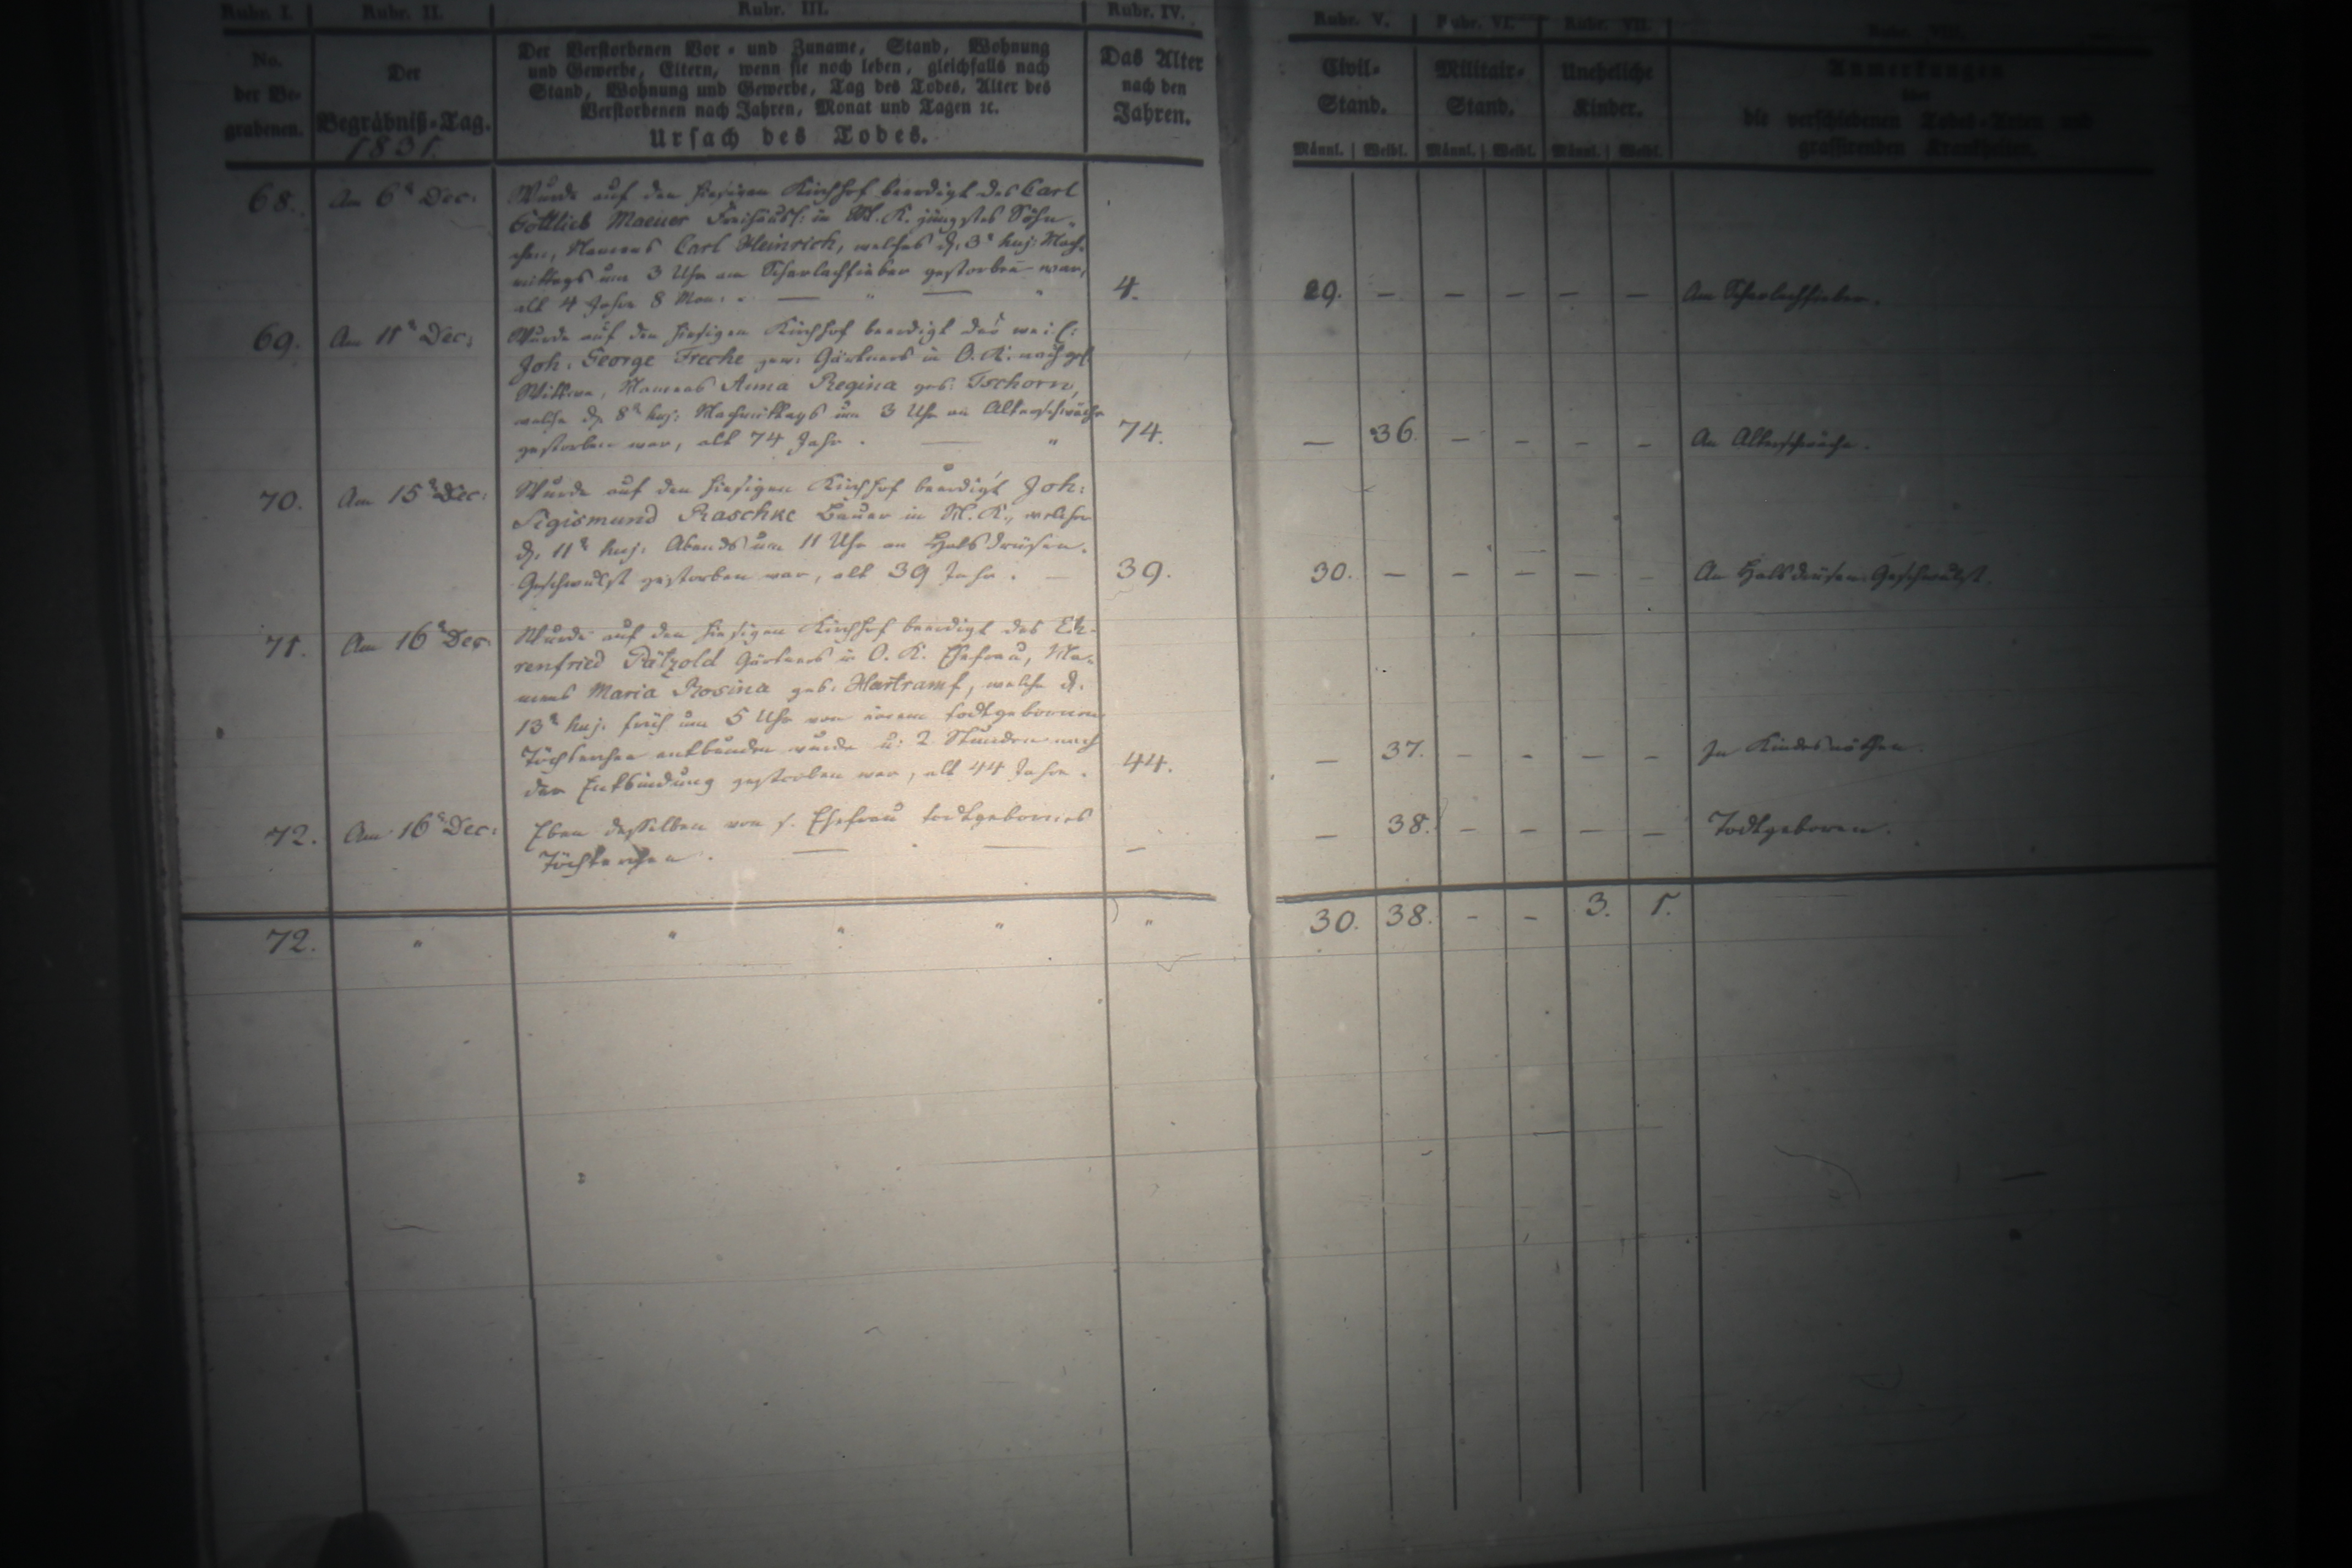 Rubr. I. Rubr. II. Rubr. III. Rubr. IV. Rubr. V. Rubr. VI. Rubr. VII. Rubr. VIII.
No. der Be-grabenen.
Der Begräbniß-Tag.
1831.
Der Verstorbenen Vor- und Zuname, Stand, Wohnung
und Gewerbe, Eltern, wenn sie noch leben, gleichfalls nach
Stand, Wohnung und Gewerbe, Tag des Todes, Alter des
Verstorbenen nach Jahren, Monat und Tagen ꝛc.
Ursach des Todes.
Das Alter
nach den
Jahren.
Civil-Stand.
Militair-Stand.
Uneheliche Kinder.
Anmerkungen
über
die verschiedenen Todes-Arten und
grassirenden Krankheiten.
Männl. Weibl. Männl. Weibl. Männl. Weibl.
68. Am 6t Dec:
Wurde auf den hiesigen Kirchhof beerdigt des Carl
Gottlieb Maeuer Freihäusl: in M. K. jüngstes Söhn-
chen, Namens Carl Heinrich, welches d. 3t huj: Nach-
mittags um 3 Uhr am Scharlachfieber gestorben war,
alt 4 Jahr 8 Mon:
4. 29. — — — — — Am Scharlachfieber.
69. Am 11t Dec:
Wurde auf den hiesigen Kirchhof beerdigt des weil:
Joh: George Freche gew: Gärtners in O. K. nachgel.
Wittwe, Namens Anna Regina geb: Tschorn,
welche d. 8t huj: Nachmittags um 3 Uhr an Altersschwäche
gestorben war, alt 74 Jahr.
74. — 36. — — — — An Altersschwäche.
70. Am 15t Dec:
Wurde auf den hiesigen Kirchhof beerdigt Joh:
Sigismund Raschke Bauer in M. K., welcher
d. 11t huj: Abends um 11 Uhr an Halsdrüsen-
Geschwulst gestorben war, alt 39 Jahr. —
39. 30. — — — — — An Halsdrüsen-Geschwulst.
71. Am 16t Dec:
Wurde auf den hiesigen Kirchhof beerdigt des Eh-
renfried Pätzold Gärtners in O. K. Ehefrau, Na-
mens Maria Rosina geb: Hartramf, welche d.
13t huj: früh um 5 Uhr von einem todtgebornen
Töchterchen entbunden wurde u: 2 Stunden nach
der Entbindung gestorben war, alt 44 Jahre.
44. — 37. — — — — In Kindesnöthen.
72. Am 16t Dec:
Eben desselben von s. Ehefrau todtgebornes
Töchterchen.
— — 38. — — — — Todtgeboren.
72. " " " " " 30. 38. - - 3. 1.